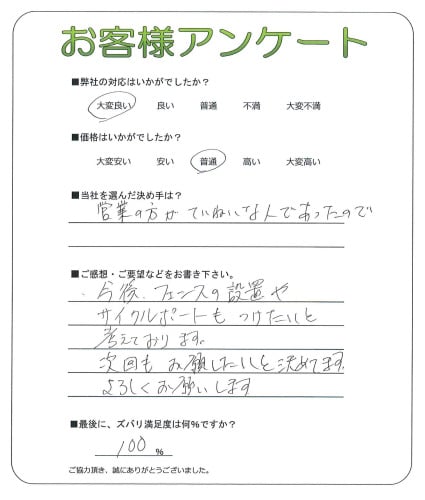 お客様アンケート
■弊社の対応はいかがでしたか？
大変良い 良い 普通 不満 大変不満
■価格はいかがでしたか？
大変安い 安い 普通 高い 大変高い
■当社を選んだ決め手は？
営業の方がていねいな人であったので
■ご感想・ご要望などをお書き下さい。
今後、フェンスの設置や
サイクルポートもつけたいと
考えております。
次回もお願したいと決めてます。
よろしくお願いします
■最後に、ズバリ満足度は何％ですか？
100 %
ご協力頂き、誠にありがとうございました。